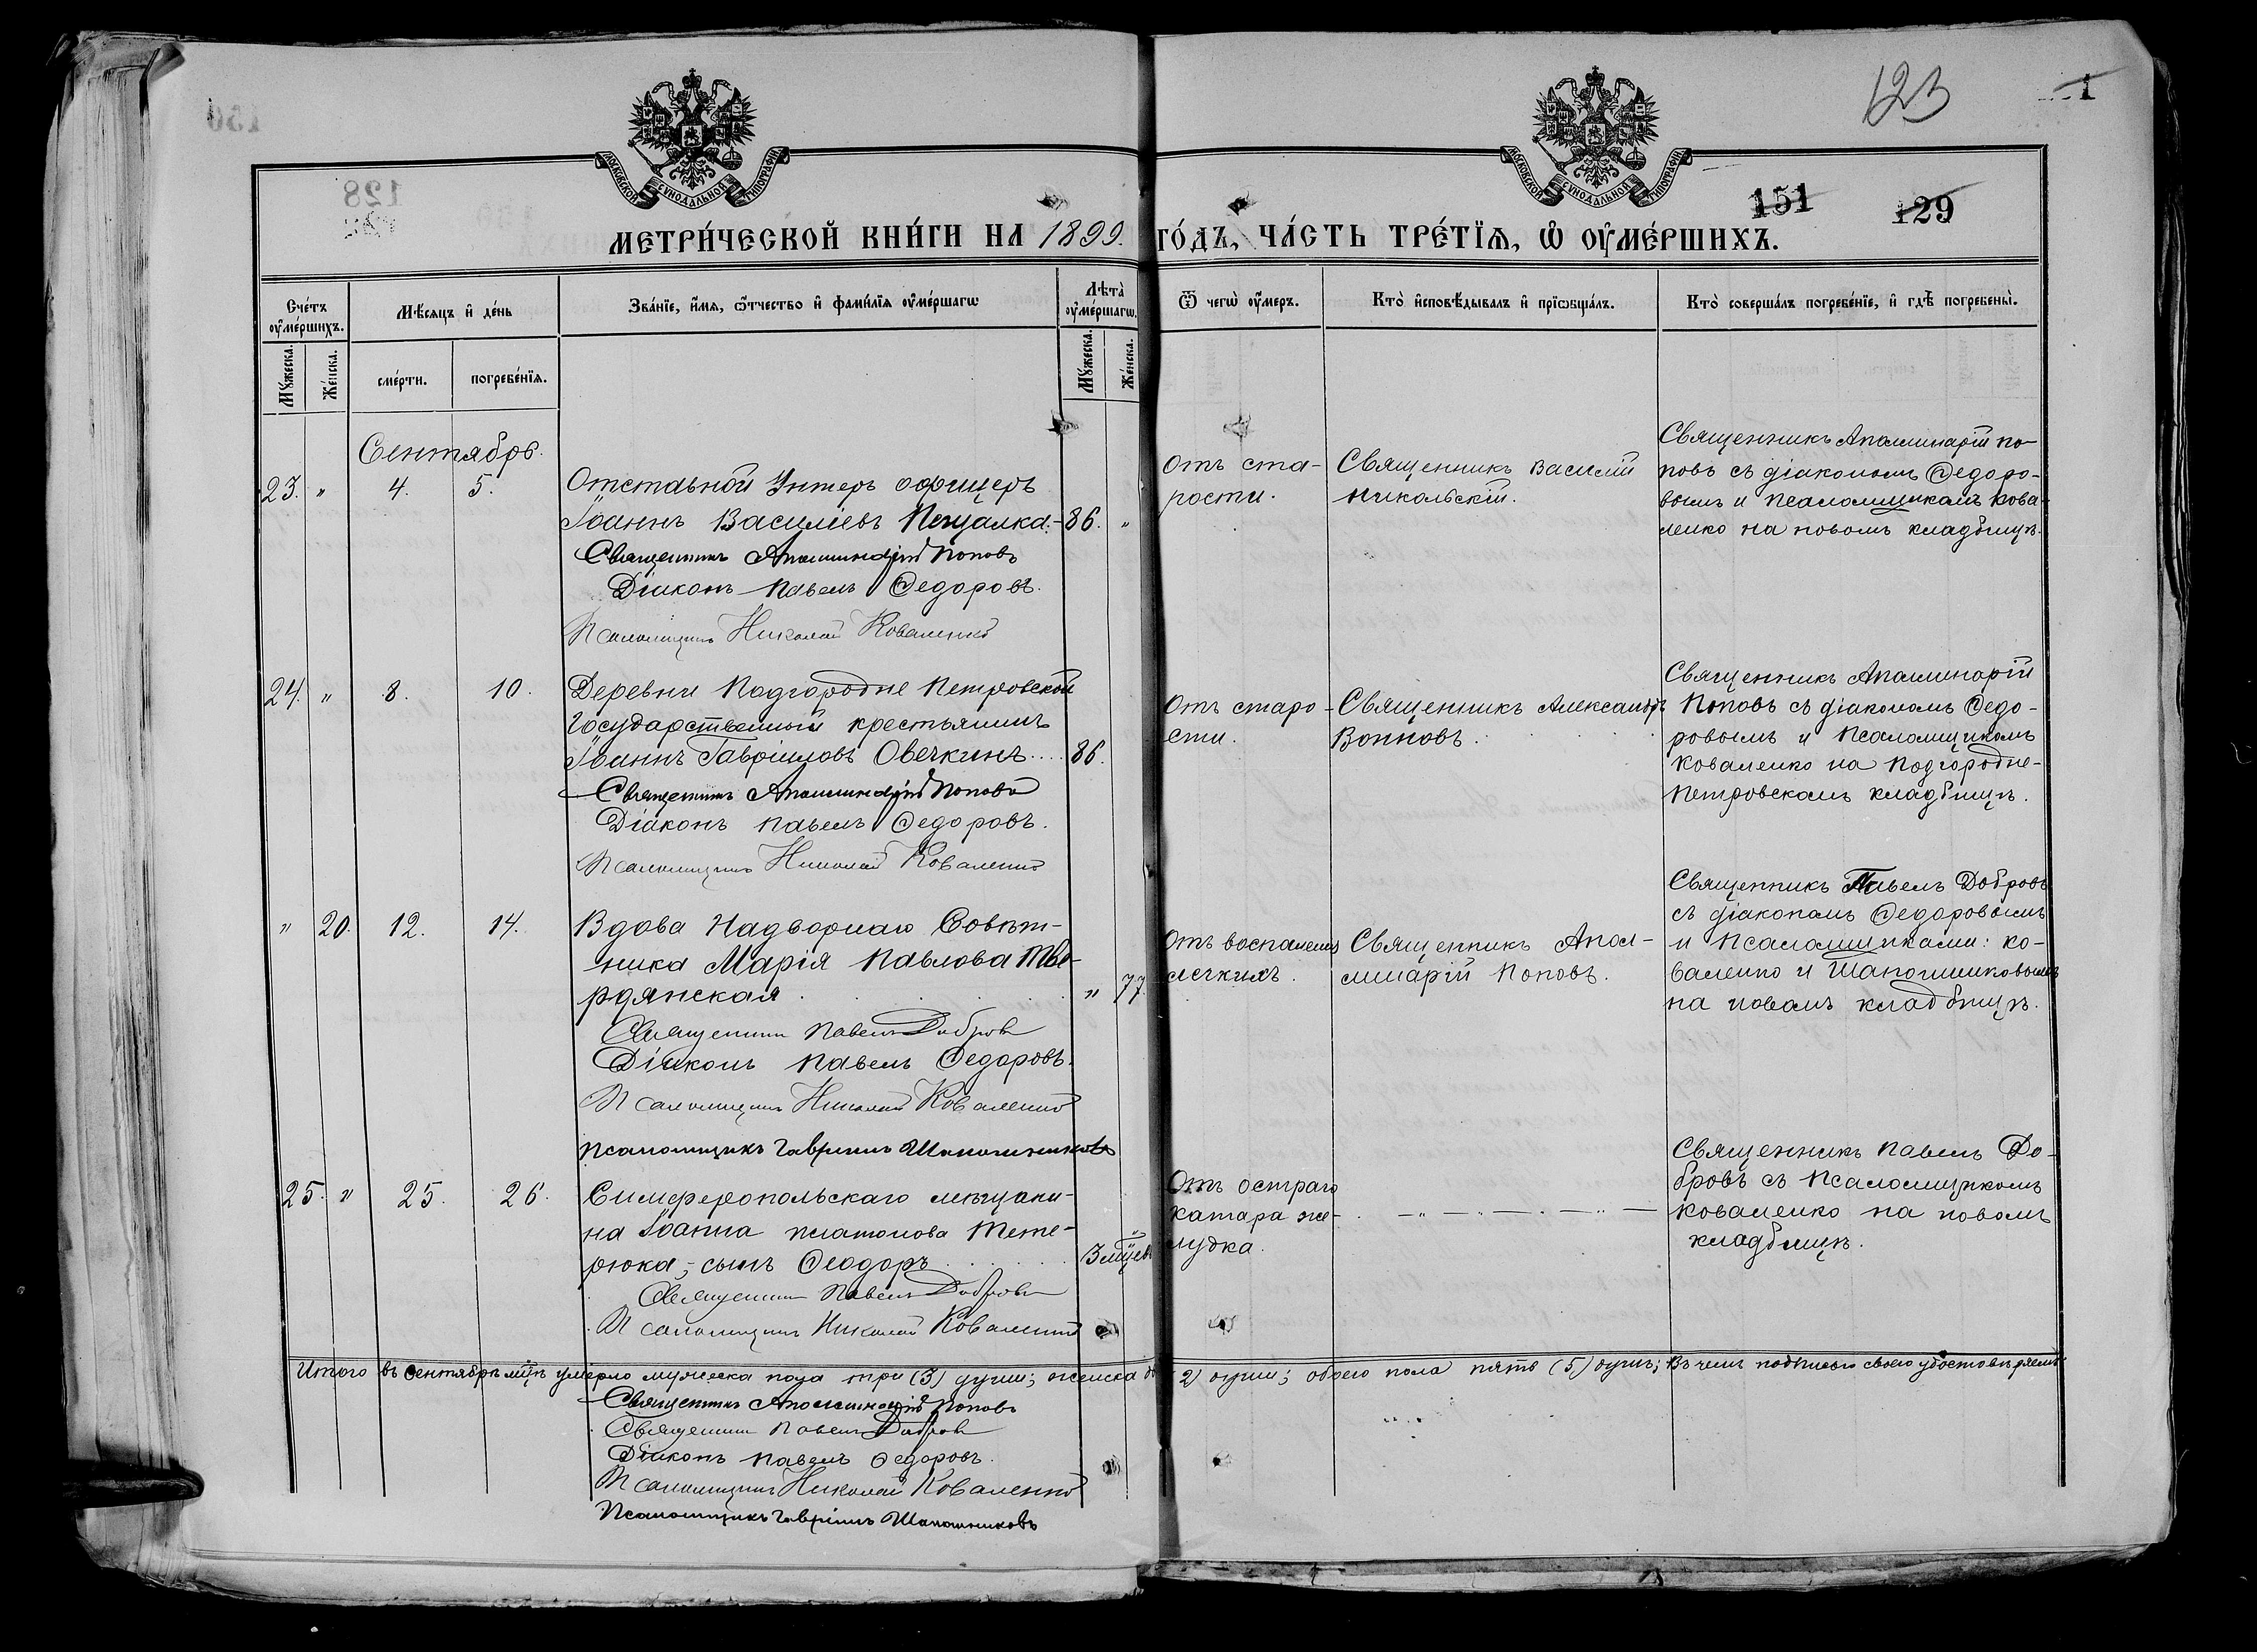 123
1
151
129
МОСКОВСКОЙ СУНОДАЛЬНОЙ ТИПОГРАФІИ
МОСКОВСКОЙ СУНОДАЛЬНОЙ ТИПОГРАФІИ
МЕТРИ́ЧЕСКОЙ КНИ́ГИ НА 1899. ГО́ДЪ, ЧА́СТЬ ТРЕ́ТЇѦ, Ѡ҆ ОУ҆МЕ́РШИХЪ.
Сче́тъ оу҆ме́ршихъ.
Мѣ́сѧцъ и҆ де́нь
Зва́нїе, и҆́мѧ, ѻ҆́тчество и҆ фами́лїѧ оу҆ме́ршагѡ
Лѣта̀ оу҆ме́ршагѡ.
Ѿ чегѡ̀ оу҆́меръ.
Кто̀ и҆сповѣ́дывалъ и҆ прїѡбща́лъ.
Кто̀ соверша́лъ погребе́нїе, и҆ гдѣ̀ погребены̀.
Мꙋ́жеска.
Же́нска.
сме́рти.
погребе́нїѧ.
Мꙋ́жеска.
Же́нска.
Сентябрь.
23. " 4. 5.
Отставной Унтеръ офицеръ
Іоаннъ Василіевъ
86. "
Священникъ Аполлинарій Поповъ
Діаконъ Павелъ Ѳедоровъ.
Псаломщикъ Николай Коваленко
Отъ ста-
рости.
Священникъ Василій
Никольскій.
Священникъ Аполлинарій По-
повъ съ діакономъ Ѳедоро-
вымъ и псаломщикамъ Кова-
ленко на новомъ кладбищѣ.
24. " 8. 10.
Деревни Подгородне Петровской
Государственный крестьянинъ
Іоаннъ Гавріиловъ Овечкинъ....
86.
Священникъ Аполлинарій Поповъ
Діаконъ Павелъ Ѳедоровъ.
Псаломщикъ Николай Коваленко
Отъ старо-
сти.
Священникъ Александръ
Священникъ Аполлинарій
Поповъ съ діакономъ Ѳедо-
ровымъ и псаломщикомъ
Коваленко на Подгородне-
Петровскомъ кладбищѣ.
" 20. 12. 14.
Вдова Надворнаго Совѣт-
ника Марія Павлова Тве-
рдянская
" 77.
Священникъ Павелъ Добровъ
Діаконъ Павелъ Ѳедоровъ.
Псаломщикъ Николай Коваленко
Псаломщикъ Гавріилъ Шапошниковъ
Отъ воспаленія
легкихъ.
Священникъ Апол-
линарій Поповъ.
Священникъ Павелъ Добровъ
съ діакономъ Ѳедоровымъ
и псаломщиками: Ко-
валенко и Шапошниковымъ
на новомъ кладбищѣ.
25. " 25. 26.
Симферопольскаго мѣщани-
на Іоанна Платонова Тете-
рюка, сынъ Ѳеодоръ
3 мцев
Священникъ Павелъ Добровъ
Псаломщикъ Николай Коваленко
Отъ остраго
катара же-
лудка.
Священникъ Павелъ До-
бровъ съ псаломщикомъ
Коваленко на новомъ
кладбищѣ.
Итого въ сентябрѣ мцѣ умерло мужеска пола три (3) души; женска 2) души; обоего пола пять (5) душъ; въ чемъ подписью своею удостовѣряемъ
Священникъ Аполлинарій Поповъ
Священникъ Павелъ Добровъ
Діаконъ Павелъ Ѳедоровъ.
Псаломщикъ Николай Коваленко
Псаломщикъ Гавріилъ Шапошниковъ